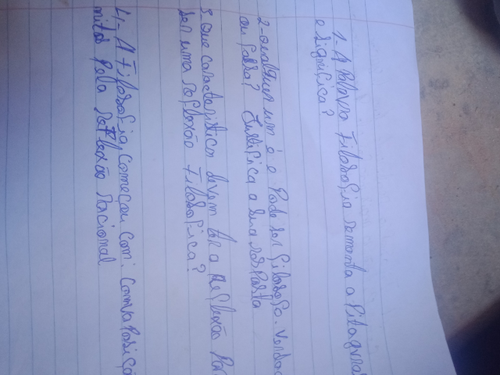 1- A Palavra Filosofia remonta a Pitagora
o significa?
2- qualquer um é o Pode ser filosofo. Verdad
ou falsa? Justifica a sua resposta
3- que característica devem ter a reflexão Par
ser uma reflexão Filosofica?
4- A Filosofia começou com:
mitos pela reflexão racional